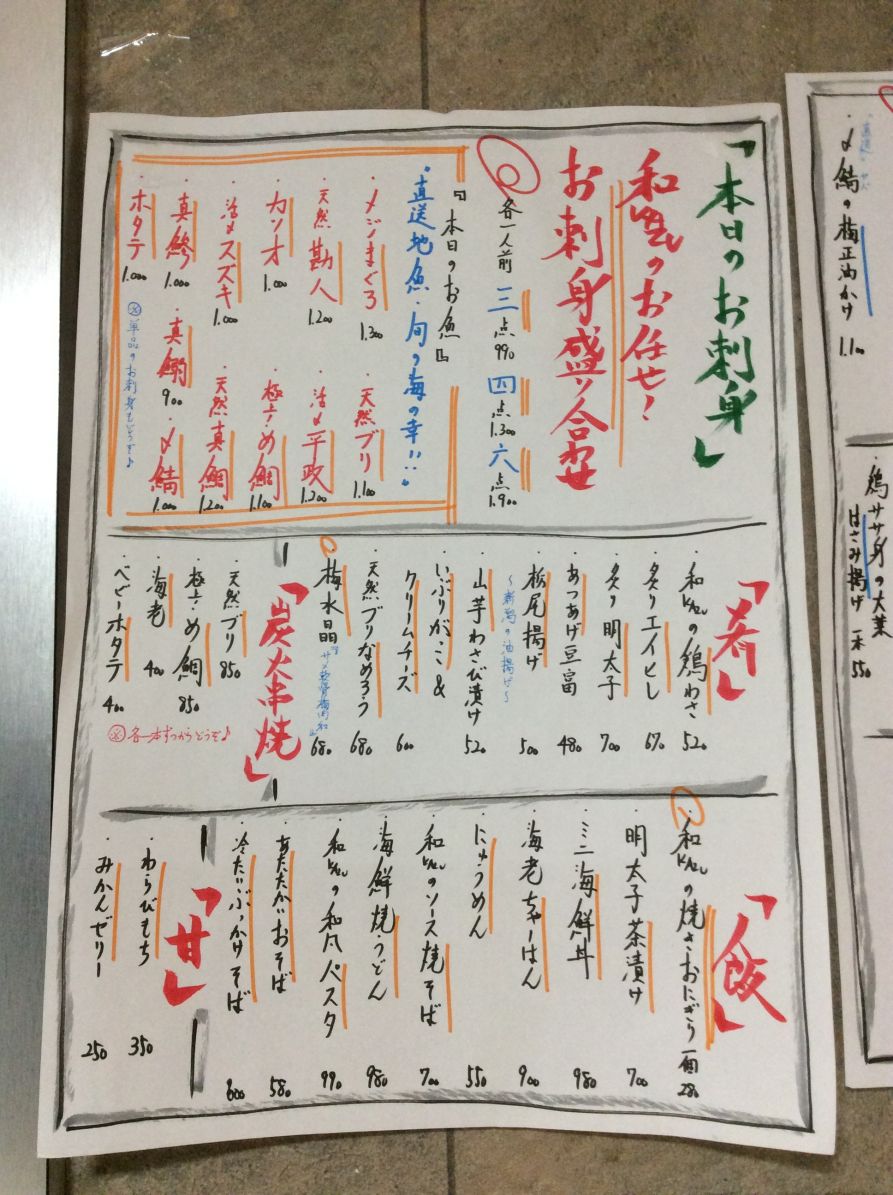 「本日のお刺身」
のお任せ!
お刺身盛り合わせ
各一人前 三点 990 四点 1.300 六点 1.900
『本日のお魚』
・直送地魚・旬の海の幸‼・
・メジまぐろ 1.300
・天然ブリ 1.100
・天然 勘八 1.200
・活〆平政 1.200
・カツオ 1.000
・極きめ鯛 1.100
・活〆スズキ 1.000
・天然真鯛 1.200
・真鯵 1.000
・真鰯 900
・〆鯖 1.000
・ホタテ 1.000
※単品のお刺身もどうぞ♪
「肴」
の鶏わさ 520
・炙りエイヒレ 670
・炙り明太子 700
・あつあげ豆富 480
・栃尾揚げ 500
〜新潟の油揚げ〜
・山芋わさび漬け 520
・いぶりがっこ&
クリームチーズ 600
・天然ブリなめろう 680
・梅水晶 680
「炭火串焼」
・天然ブリ 850
・極きめ鯛 850
・海老 400
・ベビーホタテ 400
※各一本ずつからどうぞ♪
「飯」
の焼きおにぎり 一個 280
・明太子茶漬け 700
・ミニ海鮮丼 980
・海老ちゃーはん 900
・にゅうめん 550
のソース焼そば 700
・海鮮焼うどん 980
の和風パスタ 990
・あたたかいおそば 580
・冷たいぶっかけそば 600
「甘」
・わらびもち 350
・みかんゼリー 250
・〆鯖の梅正油かけ 1.100
・鶏ササ身の大葉
はさみ揚げ 一本 550